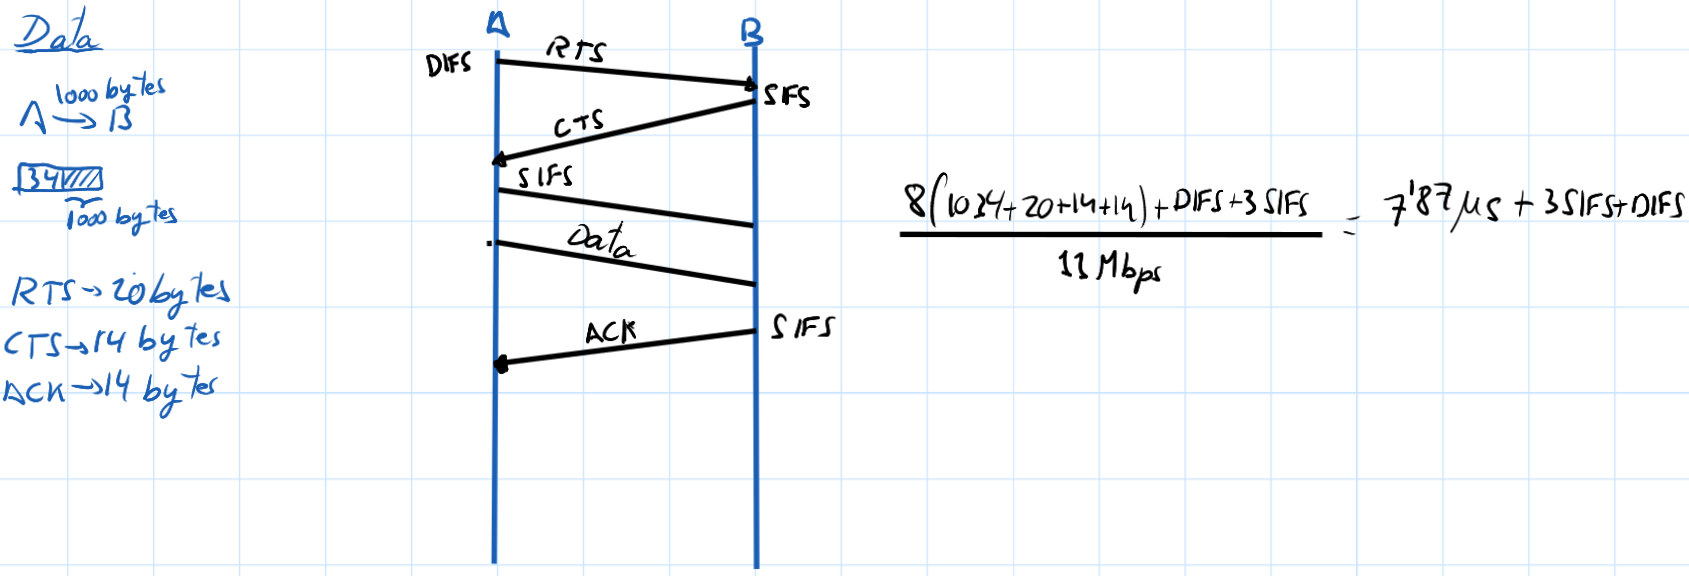 Data
A 1000 bytes → B
34
1000 bytes
RTS → 20 bytes
CTS → 14 bytes
ACK → 14 bytes
A
B
DIFS
RTS
SIFS
CTS
SIFS
Data
ACK
SIFS
8(1034+20+14+14)+DIFS+3SIFS
11 Mbps
= 7'87 μs + 3SIFS+DIFS